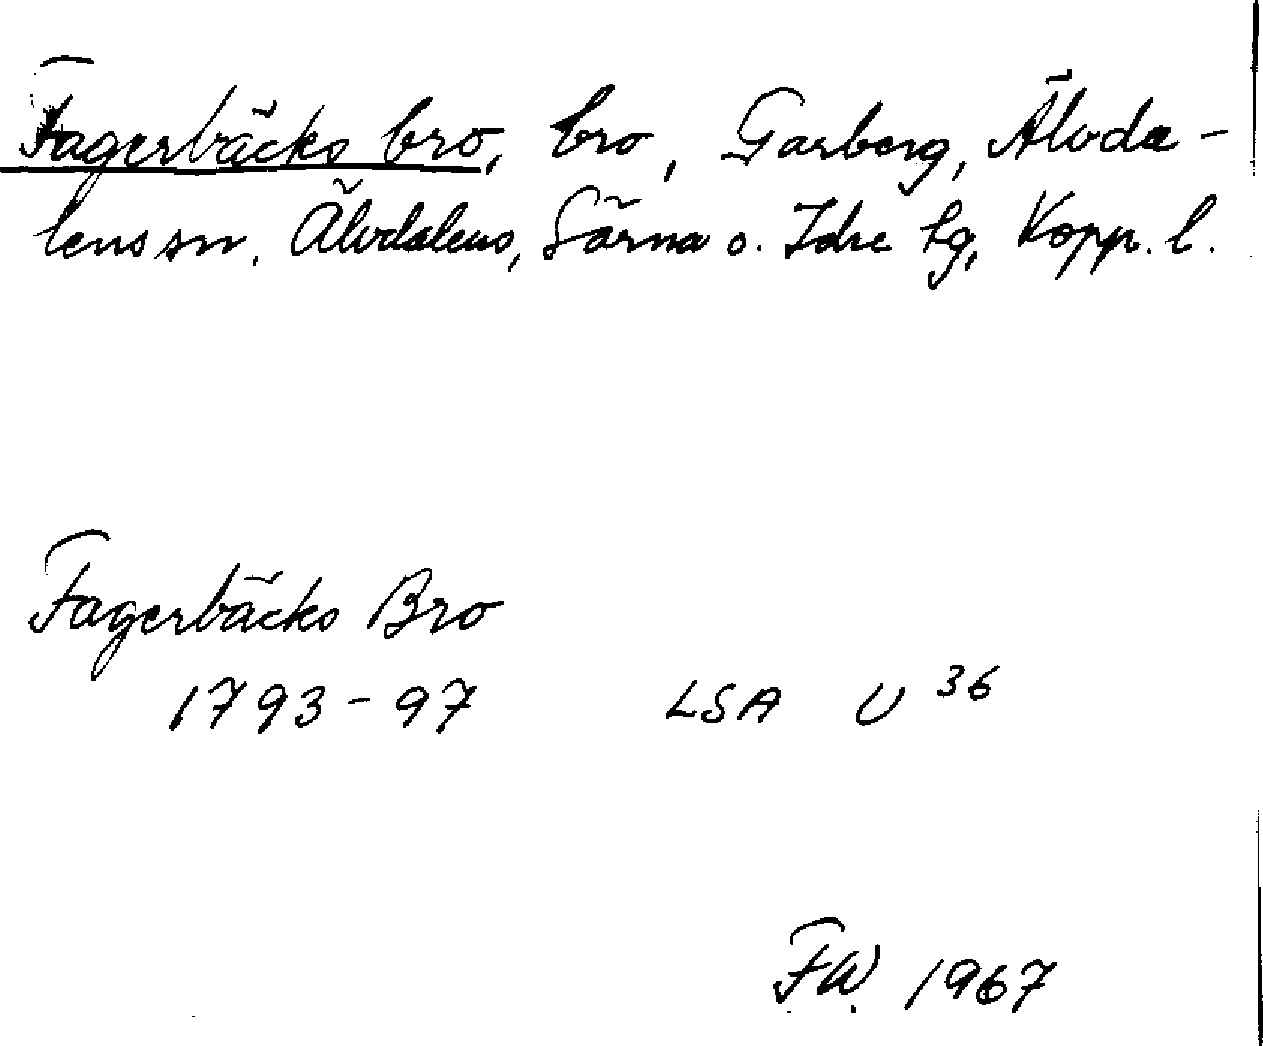 Fagerbäcks bro, bro, Garberg, Älvda-
lens sn. Älvdalens, Särna o. Idre tg, Kopp. l.
Fagerbäcks Bro
1793-97 LSA U 36
F.W. 1967